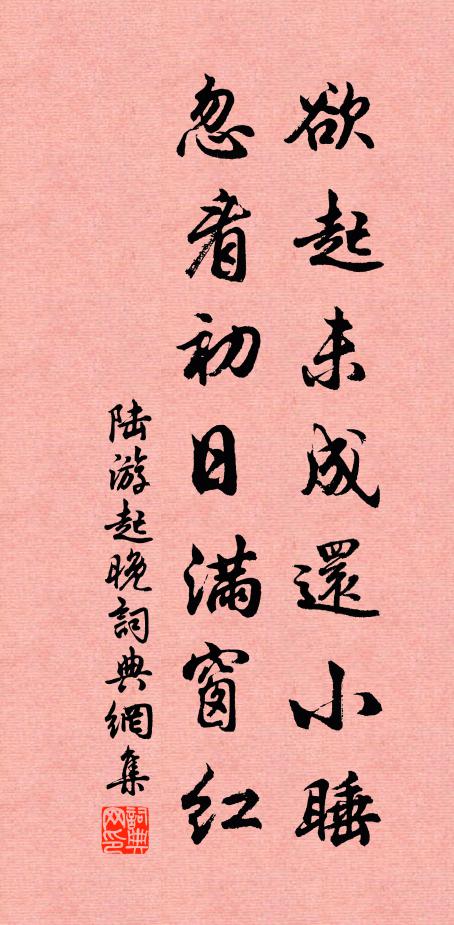 欲起未成還小睡
忽看初日满窗红
陆游起晚詞典網集
詞典网印